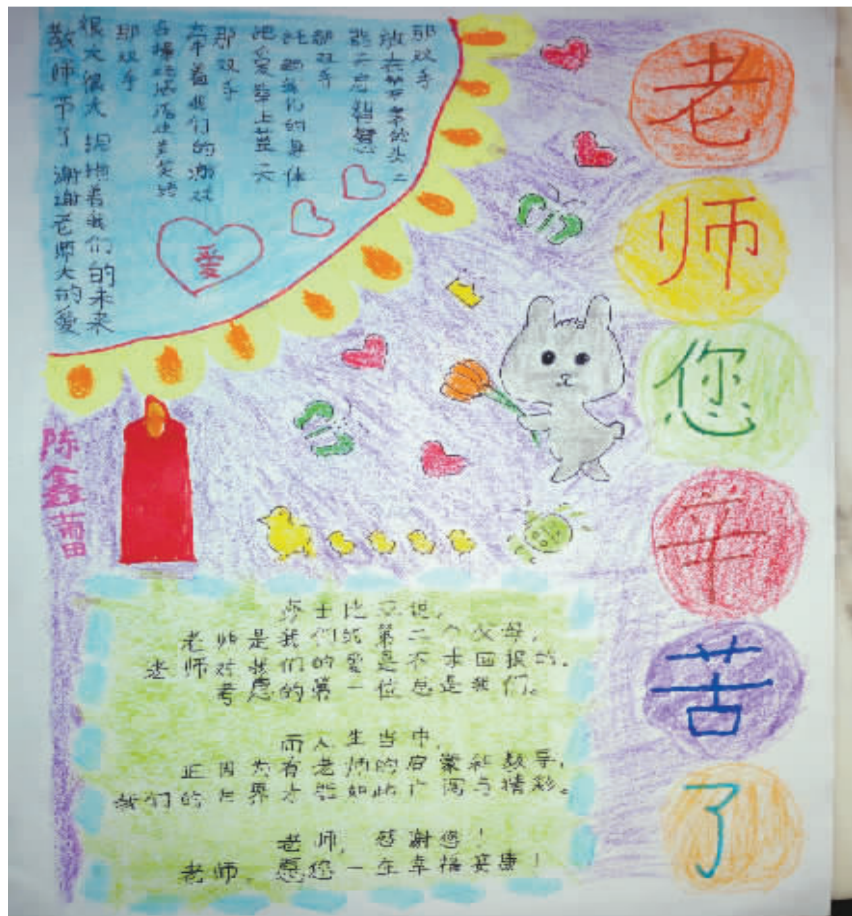 老师您辛苦了
那双手
放在的头上
能开启智慧
那双手
托起我们的身体
把爱举上蓝天
那双手
牵着我们的
那双手
很大很大 拥抱着我们的未来
教师节了 谢谢老师大的爱
爱
陈鑫莆
莎士比亚说，
老师是我们的第二个父母，
老师对我们的爱是不求回报的，
考虑的第一位总是我们。
而人生当中，
正因为有老师的启蒙和教导，
我们的世界才能如此广阔与精彩。
老师，感谢您！
老师，愿您一生幸福安康！